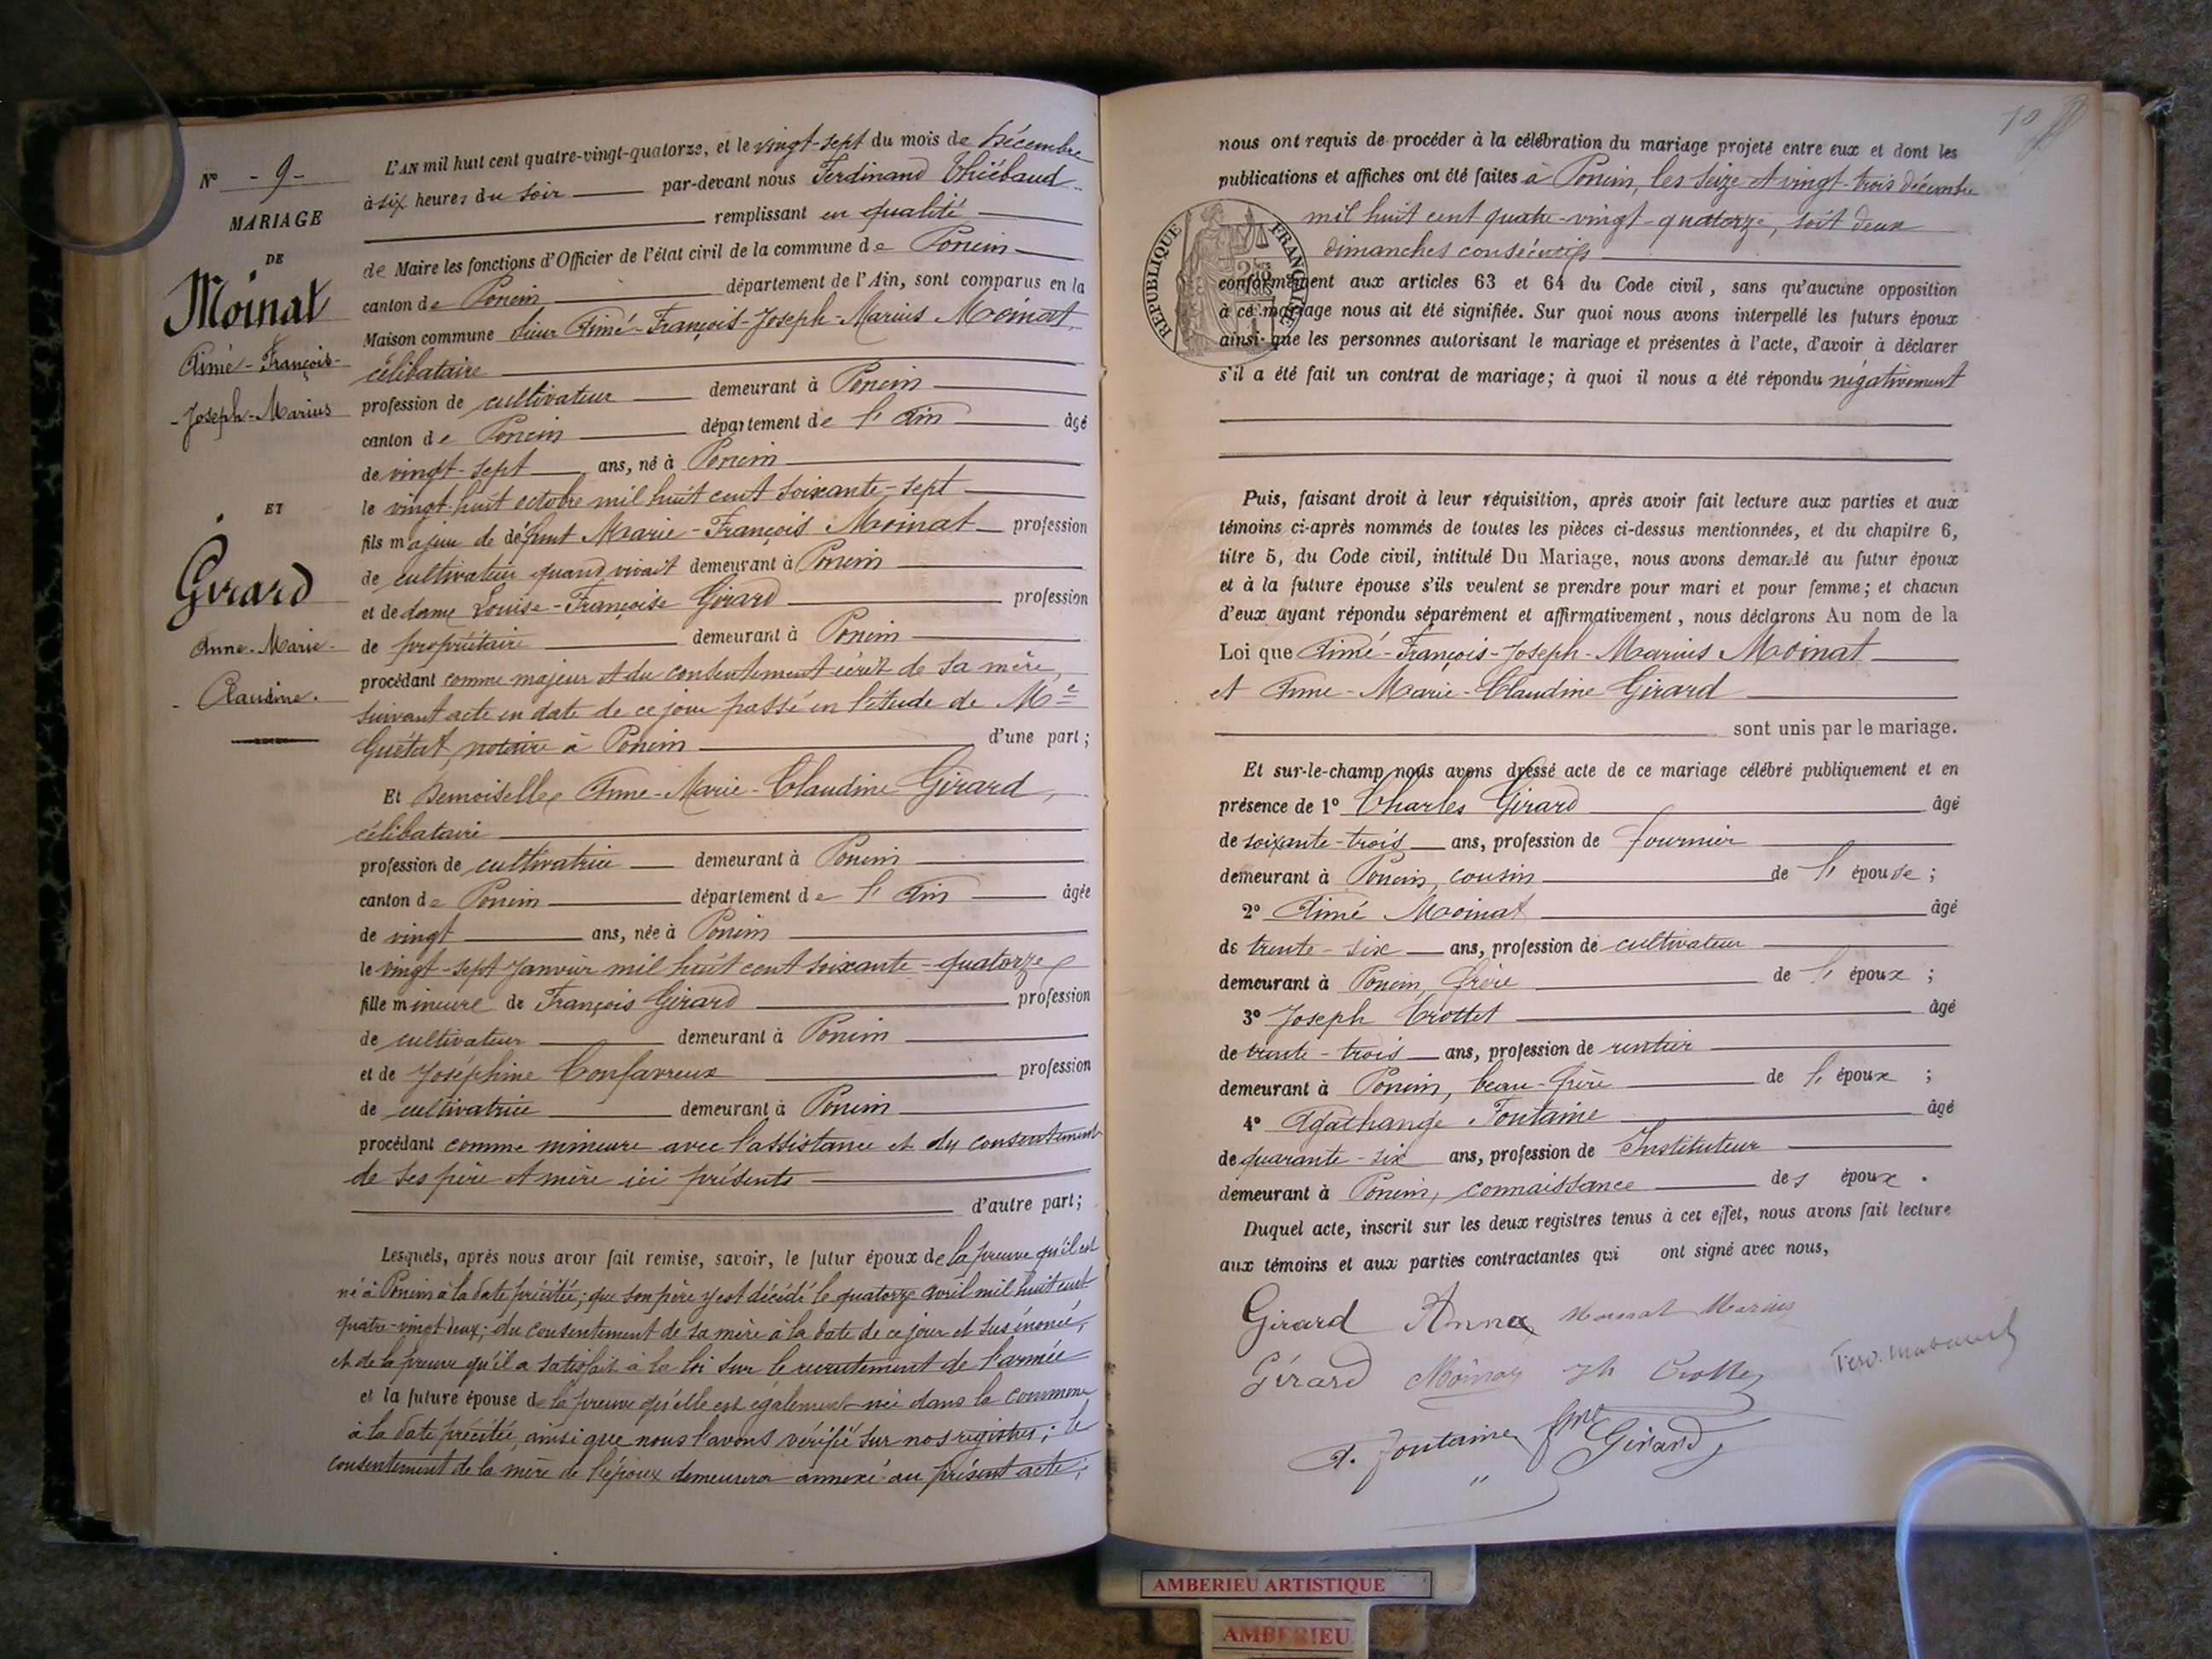 N° - 9 -
MARIAGE
DE
Moinat
Aimé - François -
- Joseph - Marius
ET
Girard
Anne - Marie -
- Claudine.
L'AN mil huit cent quatre-vingt-quatorze, et le vingt-sept du mois de Décembre
à six heures du soir par-devant nous Ferdinand Thiébaud
remplissant en qualité
de Maire les fonctions d'Officier de l'état civil de la commune de Poncin
canton de Poncin département de l'Ain, sont comparus en la
Maison commune Sieur Aimé-François-Joseph-Marius Moinat,
célibataire
profession de cultivateur demeurant à Poncin
canton de Poncin département de l'Ain âgé
de vingt-sept ans, né à Poncin
le vingt-huit octobre mil huit cent soixante-sept
fils majeur de défunt Marie-François Moinat profession
de cultivateur quand vivait demeurant à Poncin
et de dame Louise-Françoise Girard profession
de propriétaire demeurant à Poncin
procédant comme majeur et du consentement écrit de sa mère,
suivant acte en date de ce jour passé en l'étude de Me
Guétat, notaire à Poncin d'une part;
Et Demoiselle Anne-Marie-Claudine Girard,
célibataire
profession de cultivatrice demeurant à Poncin
canton de Poncin département de l'Ain âgée
de vingt ans, née à Poncin
le vingt-sept Janvier mil huit cent soixante-quatorze
fille mineure de François Girard profession
de cultivateur demeurant à Poncin
et de Joséphine Confavreux profession
de cultivatrice demeurant à Poncin
procédant comme mineure avec l'assistance et du consentement
de ses père et mère ici présents
d'autre part;
Lesquels, après nous avoir fait remise, savoir, le futur époux de la preuve qu'il est
né à Poncin à la date précitée; que son père y est décédé le quatorze avril mil huit cent
quatre-vingt deux; du consentement de sa mère à la date de ce jour et sus énoncé,
et de la preuve qu'il a satisfait à la loi sur le recrutement de l'armée
et la future épouse de la preuve qu'elle est également née dans la commune
à la date précitée, ainsi que nous l'avons vérifié sur nos registres; le
consentement de la mère de l'époux demeurera annexé au présent acte;
10
nous ont requis de procéder à la célébration du mariage projeté entre eux et dont les
publications et affiches ont été faites à Poncin, les seize et vingt-trois décembre
mil huit cent quatre-vingt-quatorze, soit deux
dimanches consécutifs
RÉPUBLIQUE FRANÇAISE
conformément aux articles 63 et 64 du Code civil, sans qu'aucune opposition
à ce mariage nous ait été signifiée. Sur quoi nous avons interpellé les futurs époux
ainsi que les personnes autorisant le mariage et présentes à l'acte, d'avoir à déclarer
s'il a été fait un contrat de mariage; à quoi il nous a été répondu négativement
Puis, faisant droit à leur réquisition, après avoir fait lecture aux parties et aux
témoins ci-après nommés de toutes les pièces ci-dessus mentionnées, et du chapitre 6,
titre 5, du Code civil, intitulé Du Mariage, nous avons demandé au futur époux
et à la future épouse s'ils veulent se prendre pour mari et pour femme; et chacun
d'eux ayant répondu séparément et affirmativement, nous déclarons Au nom de la
Loi que Aimé-François-Joseph-Marius Moinat
et Anne-Marie-Claudine Girard
sont unis par le mariage.
Et sur-le-champ nous avons dressé acte de ce mariage célébré publiquement et en
présence de 1° Charles Girard âgé
de soixante-trois ans, profession de fournier
demeurant à Poncin, cousin de l'épouse;
2° Aimé Moinat âgé
de trente-six ans, profession de cultivateur
demeurant à Poncin, frère de l'époux;
3° Joseph Crottet âgé
de trente-trois ans, profession de rentier
demeurant à Poncin, beau-frère de l'époux;
4° Agathange Fontaine âgé
de quarante-six ans, profession de Instituteur
demeurant à Poncin, connaissance des époux.
Duquel acte, inscrit sur les deux registres tenus à cet effet, nous avons fait lecture
aux témoins et aux parties contractantes qui ont signé avec nous,
Girard Anna Moinat Marius
Girard Moinat Jh Crottet
A. Fontaine fme Girard
AMBERIEU ARTISTIQUE
AMBERIEU